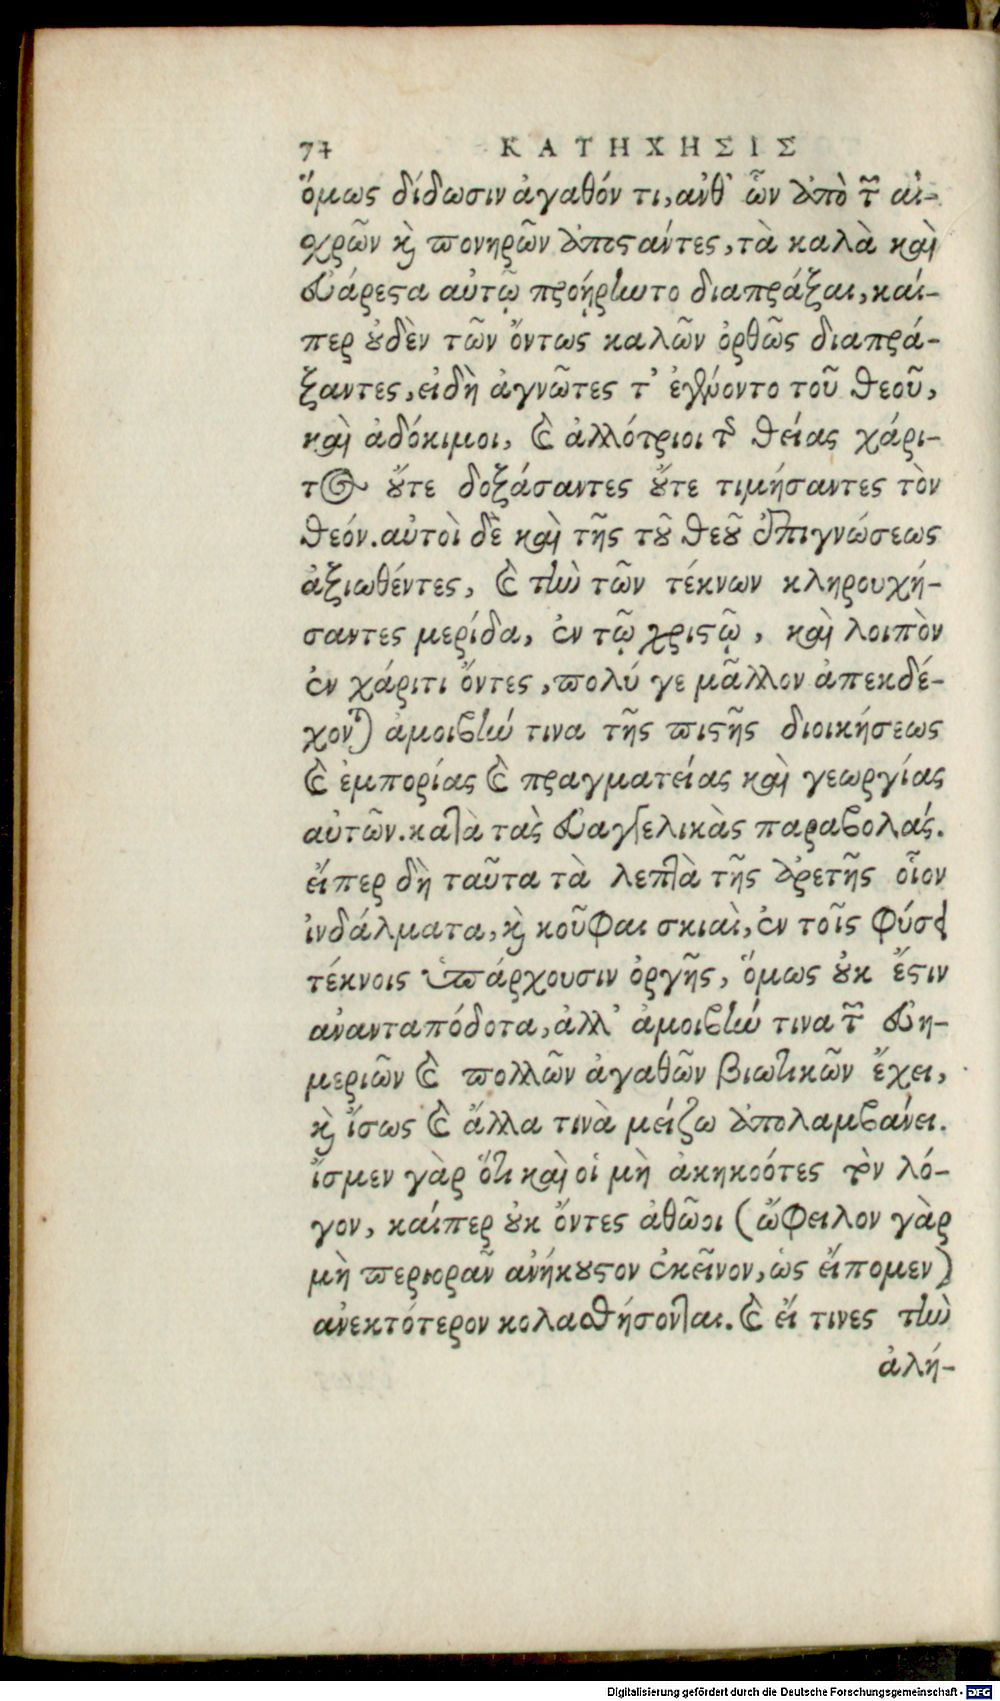 77 ΚΑΤΗΧΗΣΙΣ
ὅμως δίδωσιν ἀγαθόν τι, ἀνθ᾽ ὧν ἀπὸ τῶν αἰ-
χρῶν καὶ πονηρῶν ἀποστάντες, τὰ καλὰ καὶ
εὐάρεστα αὐτῷ προῄρηντο διαπράξαι, καί-
περ οὐδὲν τῶν ὄντως καλῶν ὀρθῶς διαπρά-
ξαντες, εἰ δὴ ἀγνῶτες τ᾽ ἐγένοντο τοῦ θεοῦ,
καὶ ἀδόκιμοι, καὶ ἀλλότριοι τῆς θείας χάρι-
τος οὔτε δοξάσαντες οὔτε τιμήσαντες τὸν
θεόν. αὐτοὶ δὲ καὶ τῆς τοῦ θεοῦ ἐπιγνώσεως
ἀξιωθέντες, καὶ τὴν τῶν τέκνων κληρουχή-
σαντες μερίδα, ἐν τῷ χριστῷ, καὶ λοιπὸν
ἐν χάριτι ὄντες, πολύ γε μᾶλλον ἀπεκδέ-
χονται ἀμοιβήν τινα τῆς πιστῆς διοικήσεως
καὶ ἐμπορίας καὶ πραγματείας καὶ γεωργίας
αὐτῶν. κατὰ τὰς εὐαγγελικὰς παραβολάς.
εἴπερ δὴ ταῦτα τὰ λεπτὰ τῆς ἀρετῆς οἷον
ἰνδάλματα, καὶ κοῦφαι σκιαὶ, ἐν τοῖς φύσει
τέκνοις ὑπάρχουσιν ὀργῆς, ὅμως οὐκ ἔστιν
ἀνανταπόδοτα, ἀλλ᾽ ἀμοιβήν τινα τῶν εὐη-
μεριῶν καὶ πολλῶν ἀγαθῶν βιωτικῶν ἔχει,
καὶ ἴσως καὶ ἄλλα τινὰ μείζω ἀπολαμβάνει.
ἴσμεν γὰρ ὅτι καὶ οἱ μὴ ἀκηκοότες τὸν λό-
γον, καίπερ οὐκ ὄντες ἀθῶοι (ὤφειλον γὰρ
μὴ περιορᾶν ἀνήκουστον ἐκεῖνον, ὡς εἴπομεν)
ἀνεκτότερον κολασθήσονται. καὶ εἴ τινες τὴν
ἀλή-
Digitalisierung gefördert durch die Deutsche Forschungsgemeinschaft - DFG